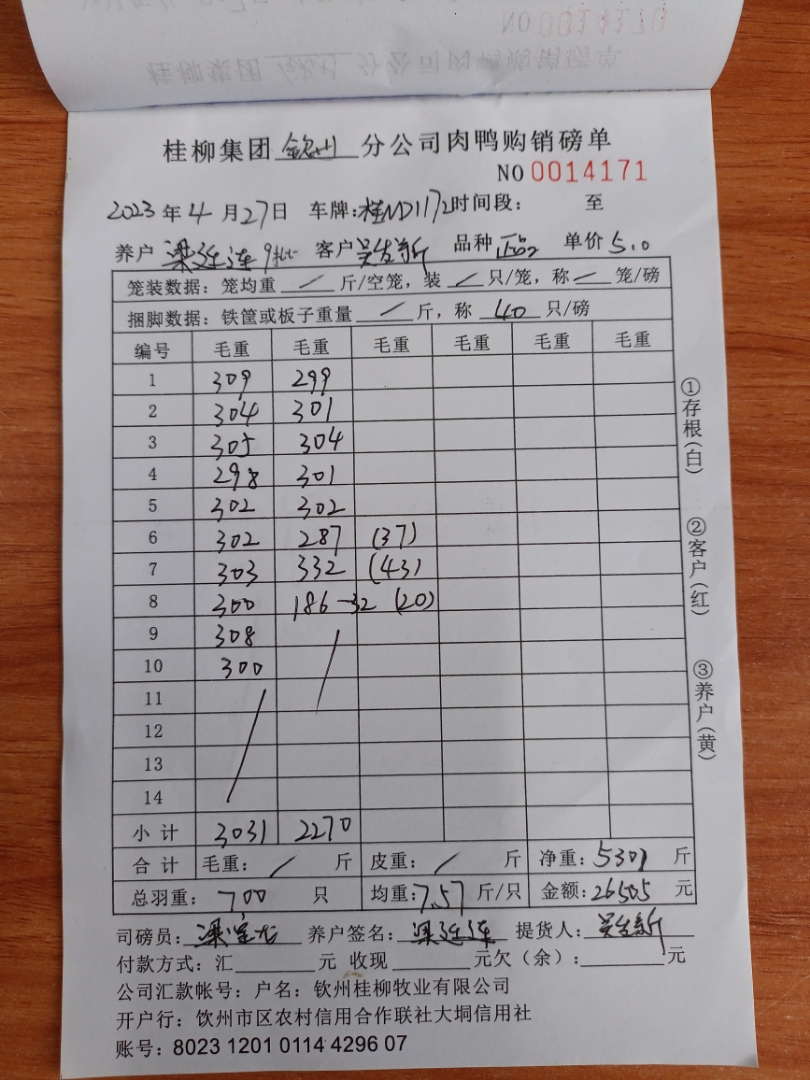 桂柳集团 钦州 分公司肉鸭购销磅单
NO 0014171
2023 年 4 月 27 日 车牌: 桂ND1172 时间段: 至
养户 梁连连 9批 客户 吴发新 品种 正品 单价 5.0
笼装数据: 笼均重 / 斤/空笼, 装 / 只/笼, 称 / 笼/磅
捆脚数据: 铁筐或板子重量 / 斤, 称 40 只/磅
编号 毛重 毛重 毛重 毛重 毛重 毛重
1 309 299
2 304 301
3 305 304
4 298 301
5 302 302
6 302 287 (37)
7 303 332 (43)
8 300 186-32 (20)
9 308
10 300
11
12
13
14
小计 3031 2270
合计 毛重: / 斤 皮重: / 斤 净重: 5301 斤
总羽重: 700 只 均重: 7.57 斤/只 金额: 26505 元
司磅员: 养户签名: 梁连连 提货人: 吴发新
付款方式: 汇 元 收现 元欠(余): 元
公司汇款帐号: 户名: 钦州桂柳牧业有限公司
开户行: 钦州市区农村信用合作联社大垌信用社
账号: 8023 1201 0114 4296 07
①存根(白)
②客户(红)
③养户(黄)